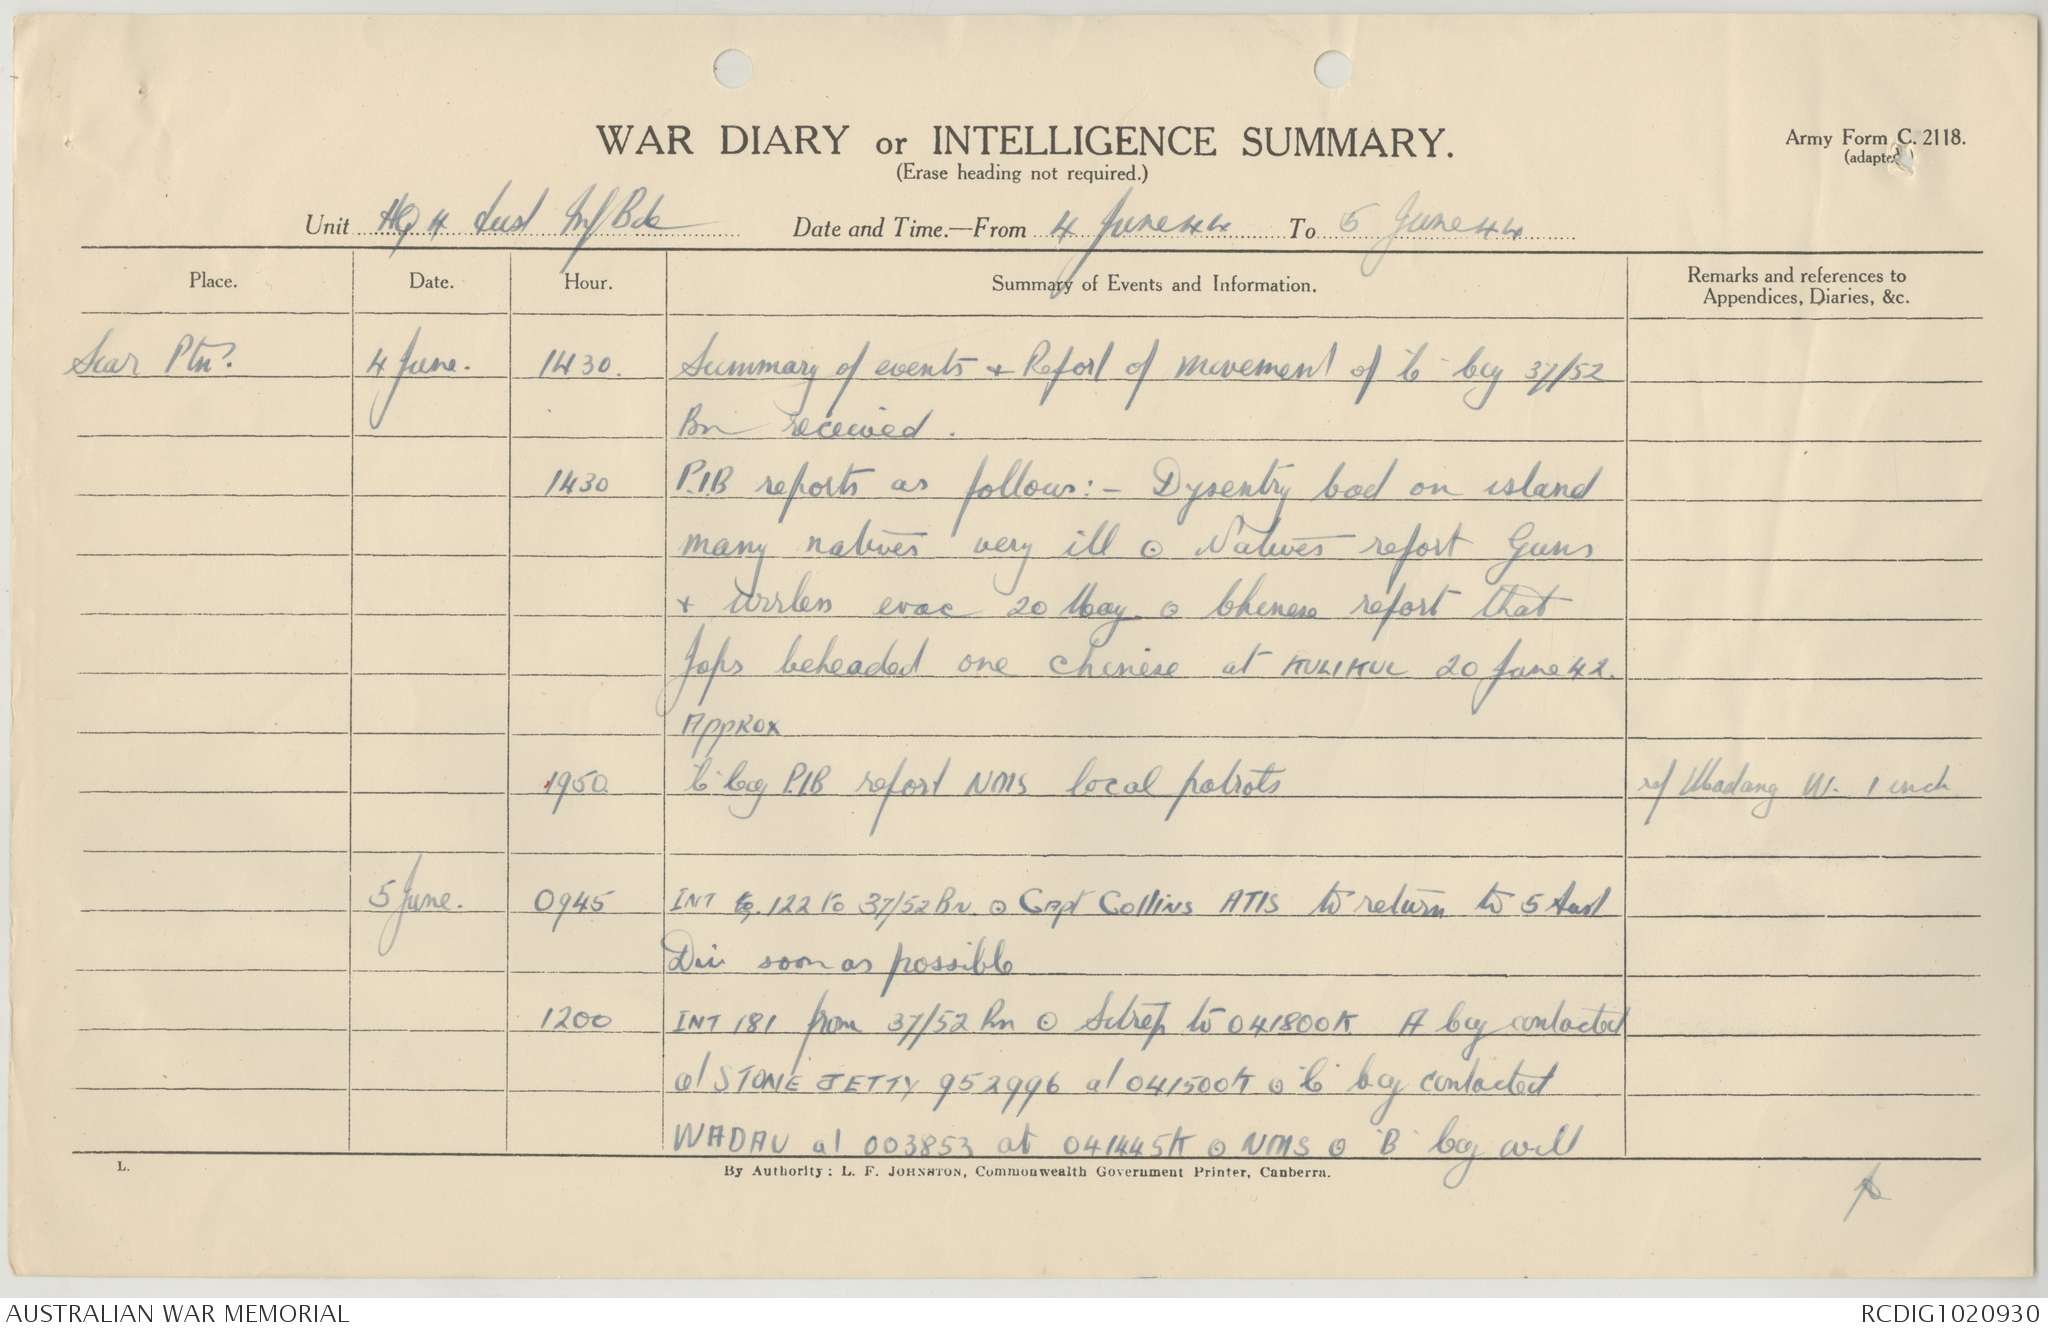 WAR DIARY or INTELLIGENCE SUMMARY.
Army Form C. 2118.
(Erase heading not required.)
(adapted)
Unit HQ 4 Aust Inf Bde Date and Time.—From 4 June 44 To 5 June 44
Place. Date. Hour. Summary of Events and Information. Remarks and references to
Appendices, Diaries, &c.
4 June. 1430. Summary of events + Report of movement of 'C' Coy 37/52
Bn received.
1430 P.I.B reports as follows:- Dysentry bad on island
many natives very ill ⊙ Natives report Guns
+ wrrless evac 20 May ⊙ Chinese report that
Japs beheaded one chinese at KULIKUL 20 June 42.
Approx
1950 'C' Coy P.I.B report NMS local patrols ref Madang W. 1 inch
5 June. 0945 INT 122 to 37/52 Bn. ⊙ Capt Collins ATIS to return to 5 Aust
Div soon as possible
1200 INT 181 from 37/52 Bn ⊙ Sitrep to 041800K A Coy contacted
at STONE JETTY 952996 at 041500K ⊙ 'C' Coy contacted
WADAU at 003853 at 041445K ⊙ NMS ⊙ 'B' Coy will
L.
By Authority: L. F. JOHNSTON, Commonwealth Government Printer, Canberra.
AUSTRALIAN WAR MEMORIAL
RCDIG1020930